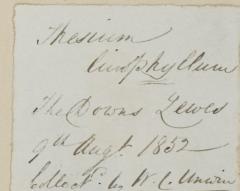 Thesium
linophyllum
The Downs Lewes
9th Augt. 1852
Collectd. by W. C. Unwin